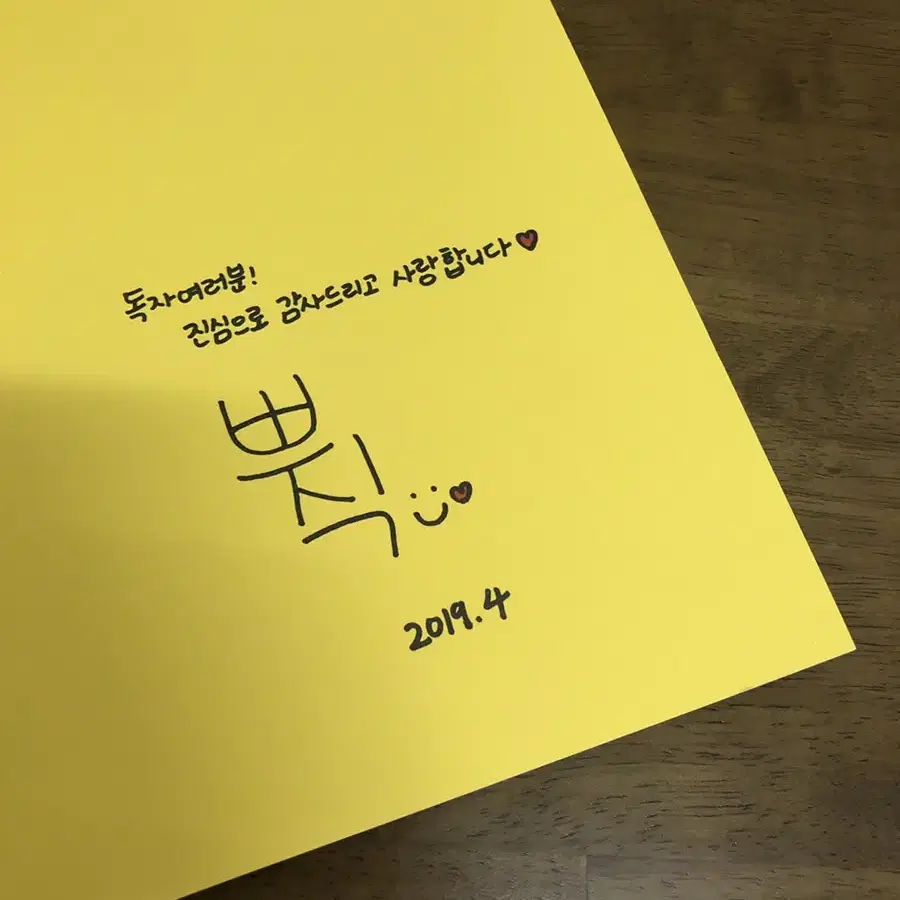 독자여러분!
진심으로 감사드리고 사랑합니다♥
뿌직
2019.4